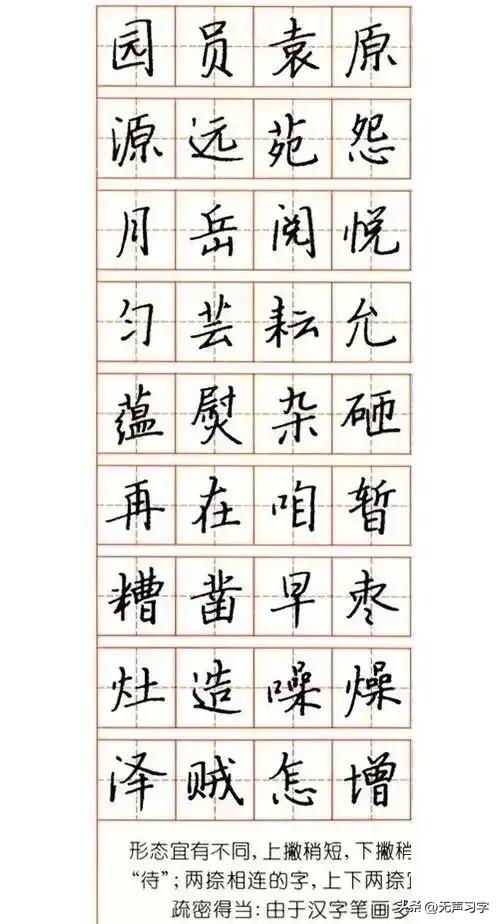 园员袁原
源远苑怨
月岳阅悦
匀芸耘允
蕴熨杂砸
再在咱暂
糟凿早枣
灶造噪燥
泽贼怎增
形态宜有不同,上撇稍短,下撇稍
“待”;两捺相连的字,上下两捺
疏密得当:由于汉字笔画多
头条@无声习字